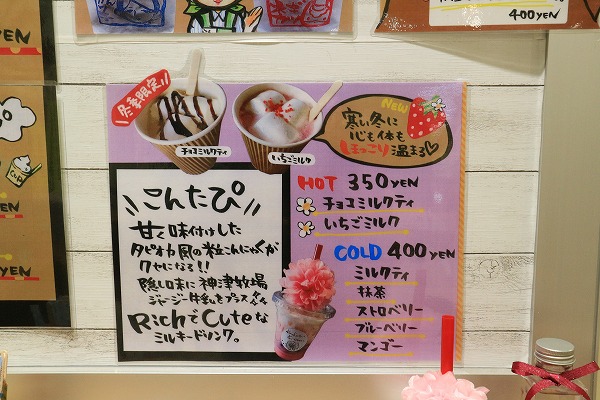 400YEN
冬季限定
チョコミルクティ
いちごミルク
New
寒い冬に
心も体も
ほっこり温まる
こんたぴ
甘く味付けした
タピオカ風の粒こんにゃくが
クセになる!!
隠し味に神津牧場
ジャージー牛乳をプラス
RichでCuteな
ミルキードリンク。
HOT 350YEN
チョコミルクティ
いちごミルク
COLD 400YEN
ミルクティ
抹茶
ストロベリー
ブルーベリー
マンゴー
YEN